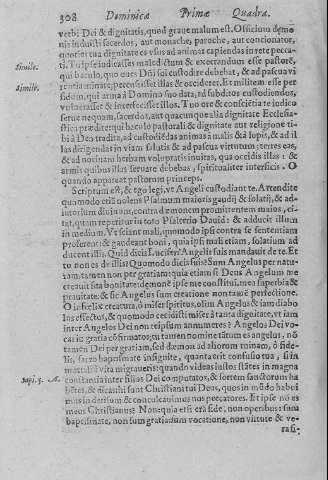 308 Dominicæ Primæ Quadra.
verbi Dei & dignitatis, quod graue malum est. Officium dęmo
nis induisti sacerdos, aut monache, paroche, aut concionator,
quoties tua dignitate es vsus ad animas capiendas in rete pecca-
Simile. ti. Tu ipse iudicasses maledictum & execrandum esse pastorē,
qui baculo, quo oues Dñi sui custodire debebat, & ad pascua vi
simile. rentia minare; percussisset illas & occideret. Et militem esse per
fidum, qui arma à Domino suo data, ad subditos custodiendos,
vulnerasset & interfecisset illos. Tuo ore & conscientia te iudico
serue nequam, sacerdos, aut quacunque alia dignitate Ecclesia-
stica præditæ: qui baculo pastorali & dignitate aut religione ti-
bi à Deo tradita, ad custodiēdas animas à malis & à lupis, & ad il
las dirigendas in viam salutis & ad pascua virtutum; terres eas,
& ad nociuam herbam voluptatis inuitas, qua occidis illas: &
armis quibus illas seruare debebas, spiritualiter interficis. O
quando appareat pastorum princeps.
Scriptum est, & ego legi, vt Angeli custodiant te. Attendite
quo modo etiā nolens Psalmum maioris gaudij & solatij, & ad-
iutorium diuinum, contra dæmonem promittentem maius, ci-
tat, quam reperitur in toto Psalterio Dauid: & adducit illum
in medium. Vt sciant mali, quomodo ipsi contra se sententiam
proferent: & gaudeant boni, quia ipsi mali etiam, solatium ad
ducent illis. Quid dicis Lucifer? Angelis suis mandauit de te. Et
tu non es de illis? Quomodo dicis suis? Sum Angelus per natu-
ram, tamen non per gratiam: quia etiam si Deus Angelum me
creauit sua bonitate: dæmonē ipse me constitui, mea superbia &
prauitate: & sic Angelus sum creatione non tamē perfectione.
O infœlix creatura, ô miser spiritus, olim Angelus & iam diabo
lus effectus, & quomodo cecidisti miser à tanta dignitate, vt iam
inter Angelos Dei non te ipsum annumeres? Angelos Dei vo-
cari o gratia cōfirmator; tu tamen nomine tātum es angelus, nō
tamen Dei per gratiam, sed dæmon ad aliorum ruinam, ô fide-
lis, sacro baptismate insignite, quanta erit confusio tua, si in
mattali à vita migraueris: quando videas iustos stātes in magna
Sapi. 5. A. constantia inter filias Dei computatos, & sortem sanctorum ha
bētes, & dicas hi sunt Christiani tui Deus, quos in mūdo habui
mus in derisum & conculcauimus nos peccatores. Et ipse nō es
meus Christianus? Non: quia etsi erā fide, non operibus: siuu
baptismate, non sum gratia: sum vocatione, non virtute & ve-
ra fi-